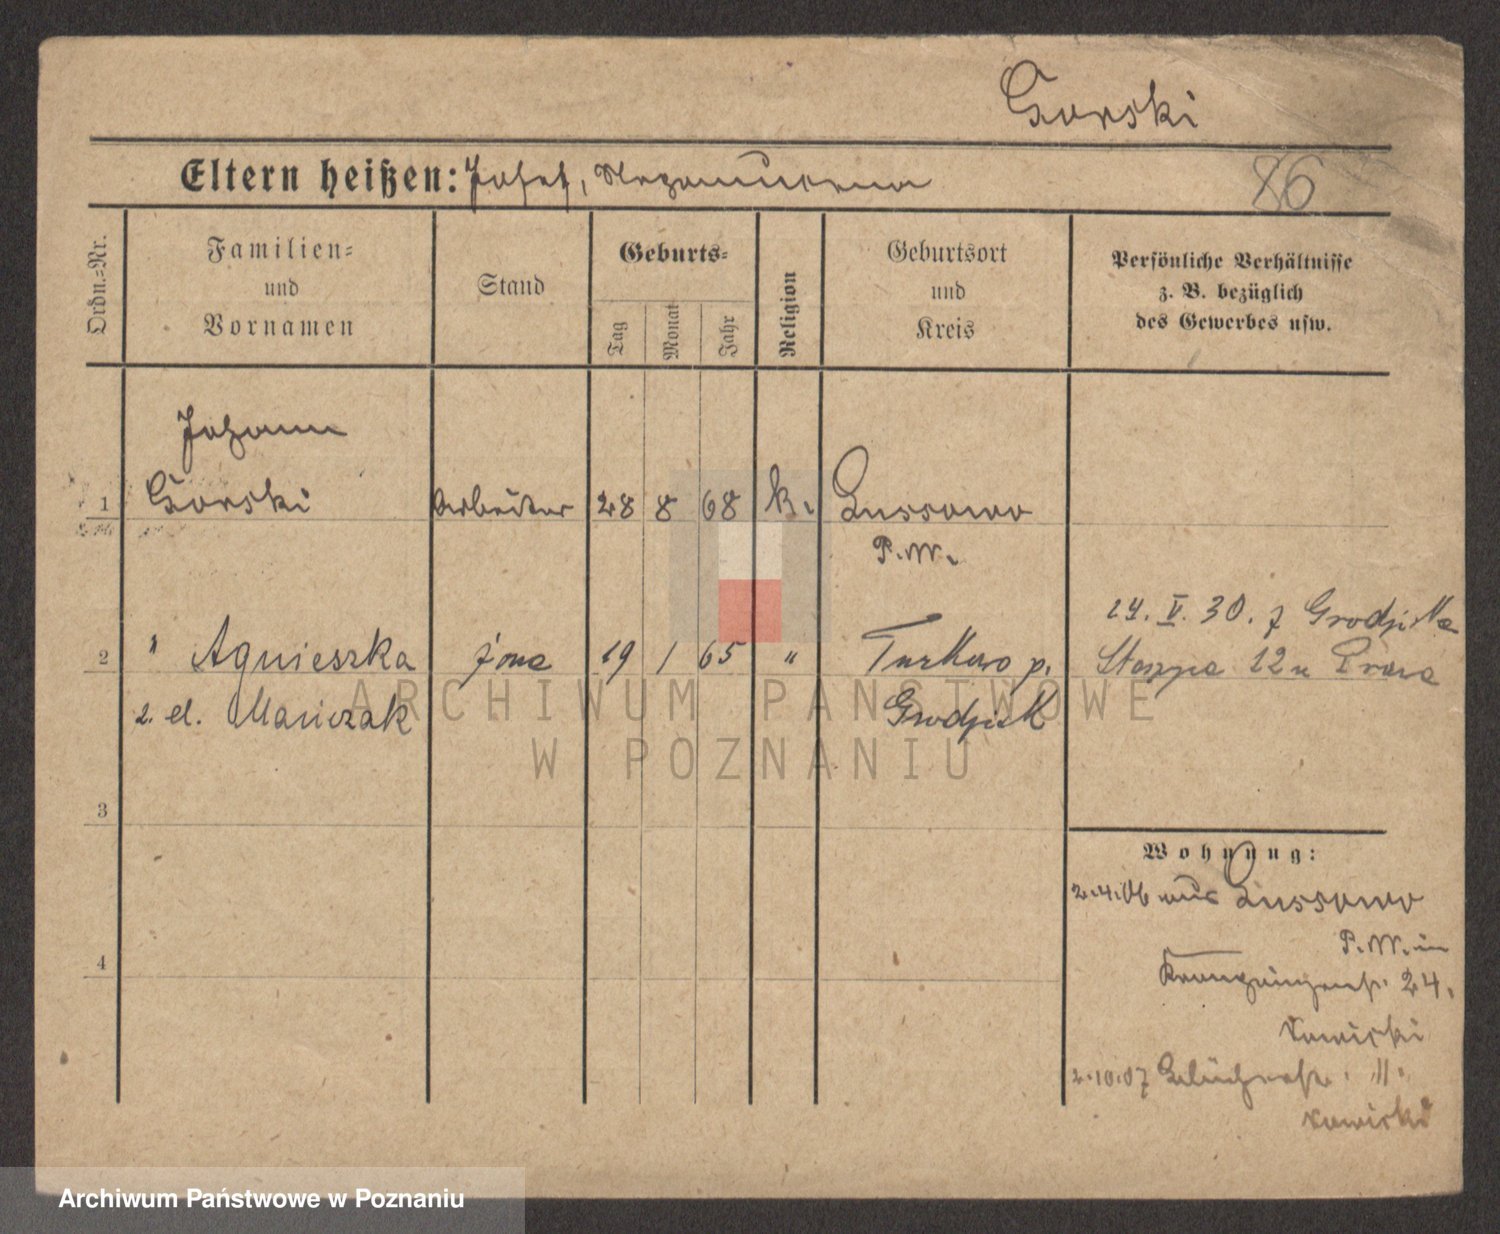 Gorski
Eltern heißen: Josef,
86
Ordn.=Nr.
Familien=
und
Vornamen
Stand
Geburts=
Tag
Monat
Jahr
Religion
Geburtsort
und
Kreis
Persönliche Verhältnisse
z. B. bezüglich
des Gewerbes usw.
Johann
1 Gorski Arbeiter 28 8 68 k. Lussowo
P. W.
24. V. 30. z Grodziska
2 " Agnieszka żona 19 1 65 " Turkowo p.
12 u
2. el. Marciniak Grodzisk
3
Wohnung:
2.4.06 aus Lussowo
P. W. in
4
24.
2.10.07 11.
ARCHIWUM PAŃSTWOWE
W POZNANIU
Archiwum Państwowe w Poznaniu